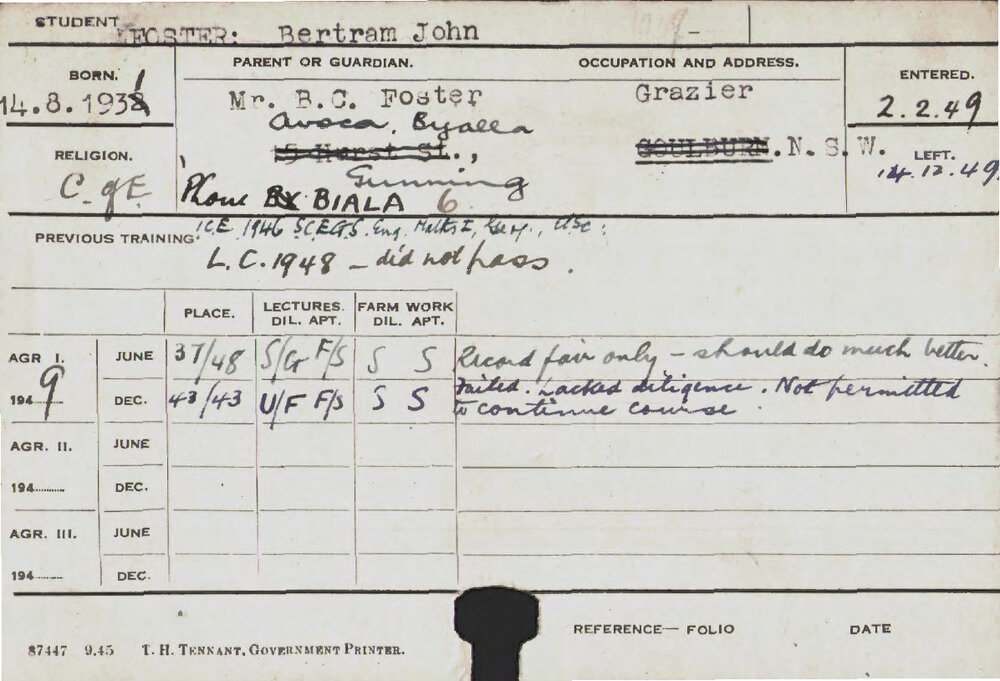 STUDENT FOSTER: Bertram John
BORN. PARENT OR GUARDIAN. OCCUPATION AND ADDRESS. ENTERED.
14.8.1931 Mr. B.C. Foster Grazier 2.2.49
Avoca, Byalla
5 Hurst St., GOULBURN. N.S.W.
RELIGION. LEFT.
C of E Gunning 14.12.49
Phone BIALA 6
PREVIOUS TRAINING I.C.E. 1946 S.C.E.G.S. Eng, Maths I, Geog.,
L.C. 1948 - did not pass.
PLACE. LECTURES. DIL. APT. FARM WORK DIL. APT.
AGR I. JUNE 37/48 S/G F/S S S Record fair only - should do much better.
1949 DEC. 43/43 U/F F/S S S Failed. Lacked diligence. Not permitted
to continue course
AGR. II. JUNE
194 DEC.
AGR. III. JUNE
194 DEC.
REFERENCE— FOLIO DATE
87447 9.45 T. H. TENNANT, GOVERNMENT PRINTER.